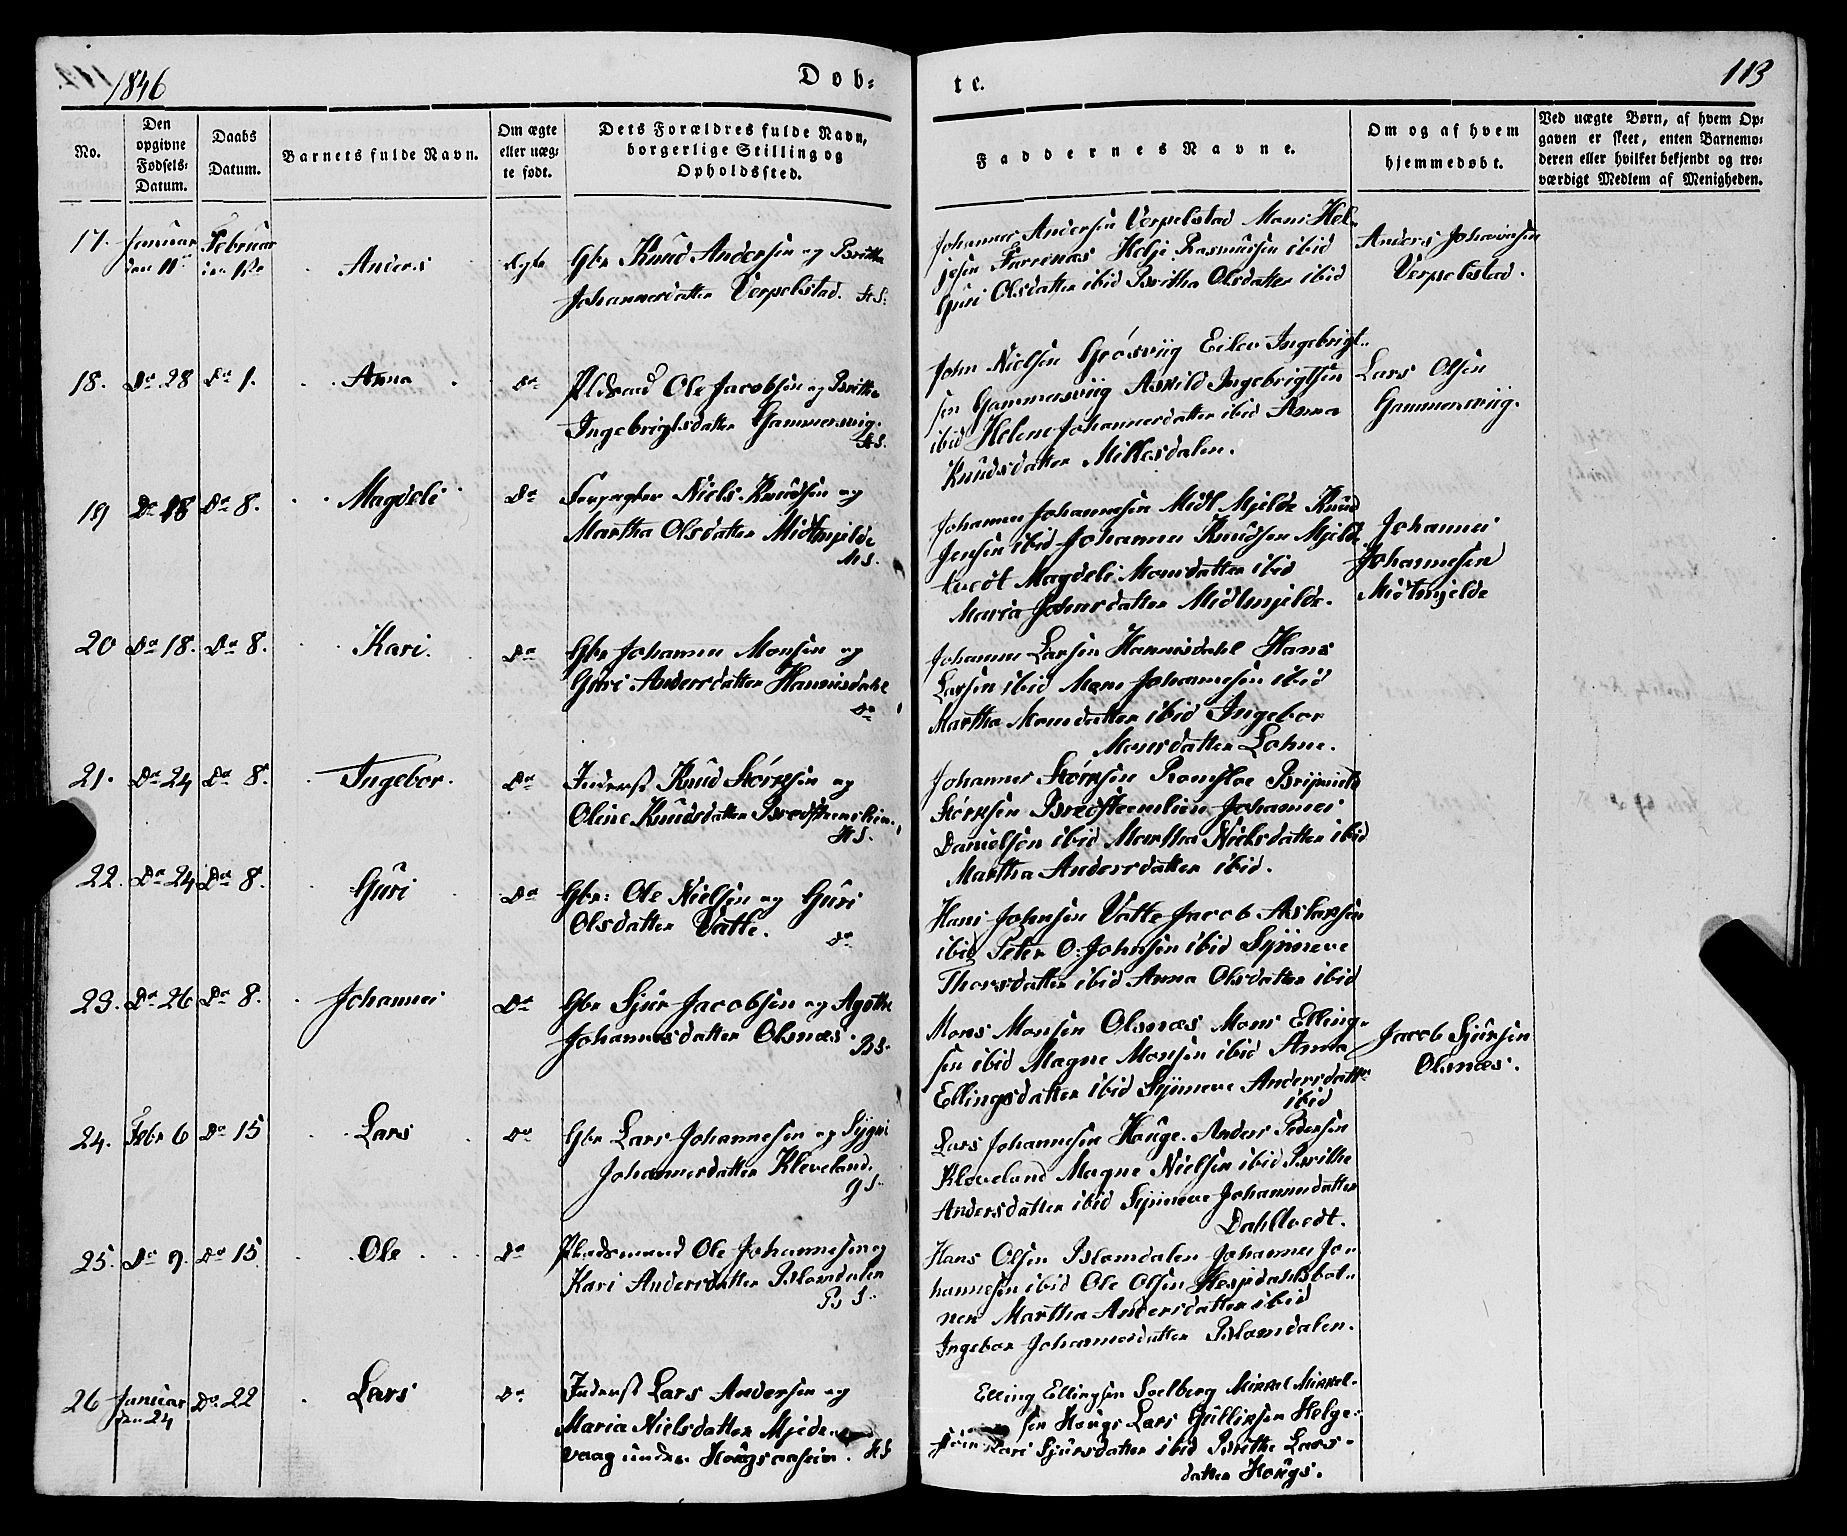 1846
Dob-
te.
113
No.
Den opgivne Fødsels-Datum.
Daabs Datum.
Barnets fulde Navn.
Om ægte eller uægte født.
Dets Forældres fulde Navn, borgerlige Stilling og Opholdssted.
Faddernes Navne.
Om og af hvem hjemmedøbt.
Ved uægte Børn, af hvem Opgaven er skeet, enten Barnemoderen eller hvilket bekjendt og troværdigt Medlem af Menigheden.
17. Januar Februar
den 11te den 1te Anders Ægte Gbr Knud Andersen og Britha
Johannesdatter Verpelstad. HS.
Johannes Andersen Verpelstad Mons Hel-
gesen Farrenæs Helje Rasmusen ibid
Guri Olsdatter ibid Britha Olsdatter ibid
Anders Johannesen
Verpelstad.
18. Do 28 Do 1. Anna Do Pldsmd Ole Jacobsen og Britha
Ingebrigtsdatter Gammersviig. HS.
John Nielsen Grøsviig Eilev Ingebrigt-
sen Gammersviig Askild Ingebrigtsen
ibid Helene Johannesdatter ibid Anna
Knudsdatter Millesdalen.
Lars Olsen
Gammersviig.
19 Do 18 Do 8. Magdeli Do Forpagter Niels Knudsen og
Martha Olsdatter Midtmjelde
MS.
Johannes Johannesen Midt Mjelde Knud
Jensen ibid Johannes Knudsen Mjeld
tvedt Magdeli Monsdatter ibid
Maria Johnsdatter Midtmjelde.
Johannes
Johannesen
Midtmjelde
20 Do 18. Do 8. Kari. Do Gbr Johannes Monsen og
Guri Andersdatter Hannisdahl
Do
Johannes Larsen Hannisdahl Hans
Larsen ibid Mons Johannesen ibid
Martha Monsdatter ibid Ingebor
Monsdatter Lohne.
21. Do 24 Do 8. Ingebor. Do Inderst Knud Størksen og
Oline Knudsdatter Bredsteenslien.
HS.
Johannes Størksen Romsloe
Størksen Bredsteenslien Johannes
Danielsen ibid Martha Nielsdatter ibid
Martha Andersdatter ibid.
22. Do 24 Do 8. Guri Do Gbr: Ole Nielsen og Guri
Olsdatter Vatle. Do
Hans Johnsen Vatle Jacob Aslaksen
ibid Peter O. Johnsen ibid Synneve
Thorsdatter ibid Anna Olsdatter ibid
23. Do 26 Do 8. Johannes Do Gbr Sjur Jacobsen og Agathe
Johannesdatter Olsnæs. BS.
Mons Monsen Olsnæs Mons Elling-
sen ibid Magne Monsen ibid Anna
Ellingsdatter ibid Synneve Andersdatter
ibid
Jacob Sjursen
Olsnæs.
24. Febr 6 Do 15 Lars Do Gbr Lars Johannesen og Sygni
Johannesdatter Kleveland.
GS.
Lars Johannesen Houge. Anders Pedersen
Kleveland Magne Nielsen ibid Brithe
Andersdatter ibid Synneve Johannesdatter
Dahltvedt.
25. Do 9. Do 15 Ole Do Pladsmand Ole Johannesen og
Kari Andersdatter Blomdalen
BS.
Hans Olsen Blomdalen Johannes Jo-
hannesen ibid Ole Olsen Hesjedalsbot-
nen Martha Andersdatter ibid
Ingebor Johannesdatter Blomdalen.
26 Januar Do 22
den 24 Lars Do Inderst Lars Andersen og
Maria Nielsdatter Mjelde-
vaag under Hougsansein. HS
Elling Ellingsen Soelberg Mikkel Mikkel-
sen Hougs Lars Gullixsen Helge-
Kari Sjursdatter ibid Brithe Lars-
datter Hougs.